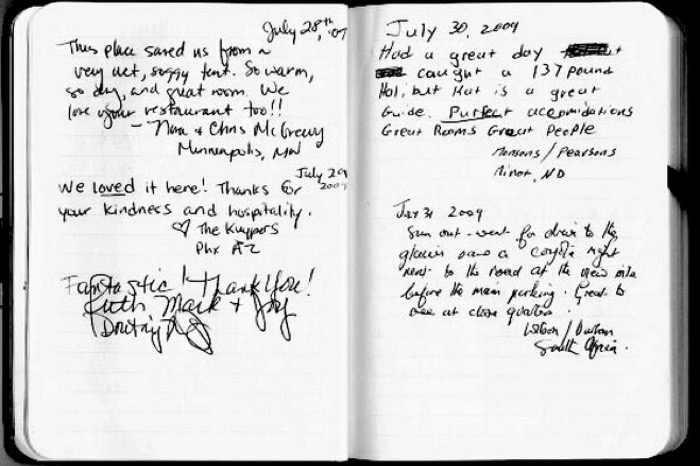 July 28,th '07
This place saved us from a
very wet, soggy tent. So warm,
so dry, and great room. We
love your restaurant too!!
- Nora & Chris McGreevy
Minneapolis, MN
July 29
2009
We loved it here! Thanks for
your kindness and hospitality.
♡ The Kuppers
Phx AZ
Fantastic! Thank You!
Ruth, Mark & Joy
July 30, 2009
Had a great day
caught a 137 pound
Halibut Hat is a great
Guide. Purfect accomidations
Great Rooms Great People
Monsons / Pearsons
Minot, ND
July 31 2009
Sun out - went for drive to the
glacier saw a coyote right
next to the road at the view site
before the main parking. Great to
see at close quarters.
/ Durban
South Africa.